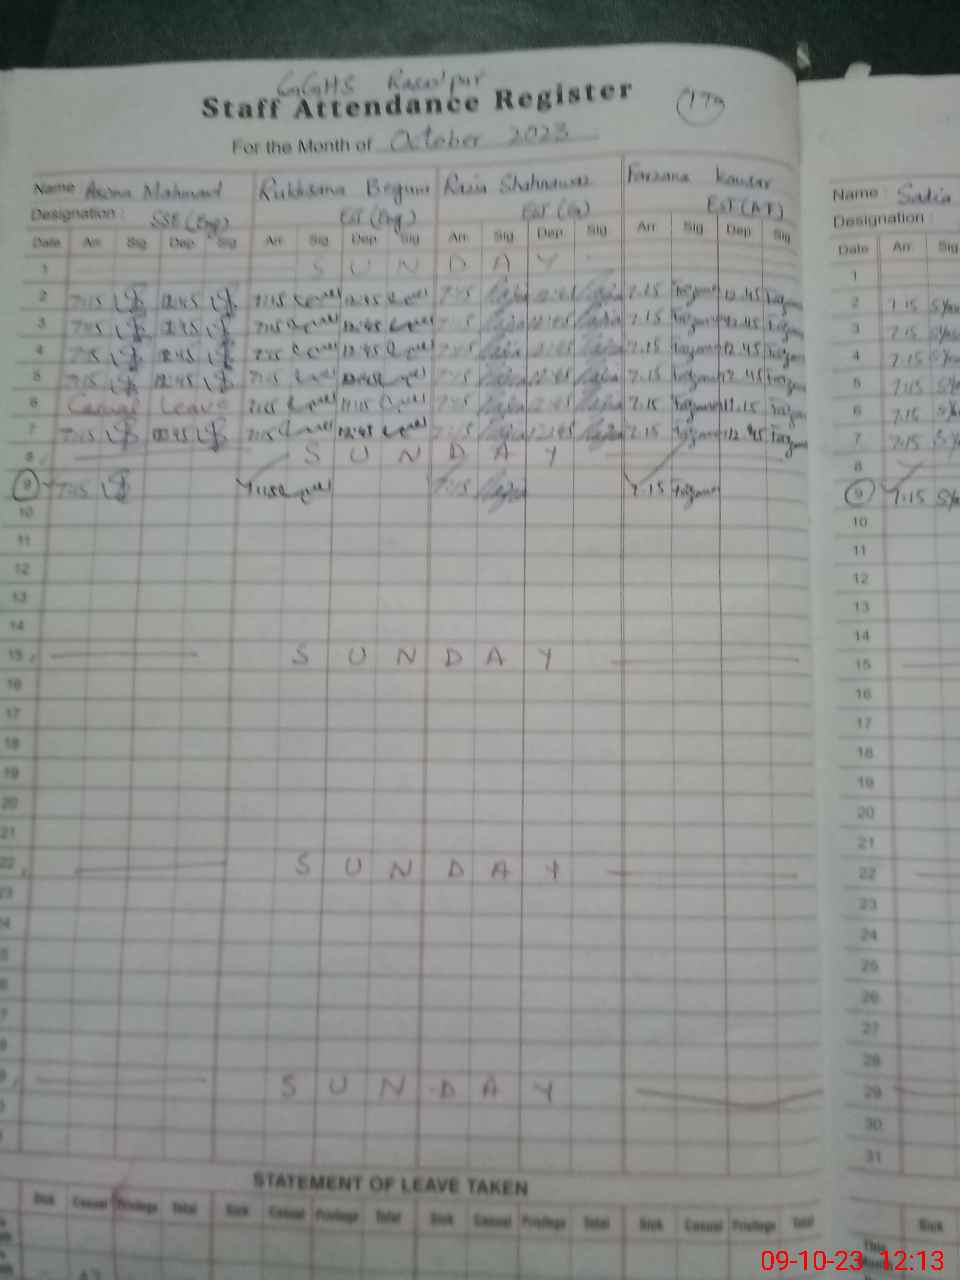 GGHS Rasulpur
Staff Attendance Register
179
For the Month of October 2023
Name Asma Mahmood Rukhsana Begum Razia Shahnawaz Farzana Kausar
Designation : SSE (Eng) EST (Eng) EST (G) EST (AT)
Date Arr. Sig Dep. Sig Arr. Sig Dep. Sig Arr. Sig Dep. Sig Arr. Sig Dep. Sig
1 S U N D A Y
2 7:15 12:45 7:15 12:45 7:15 Razia 12:45 Razia 7.15 12.45
3 7:15 12:45 7:15 12:45 7:15 Razia 12:45 Razia 7.15 12.45
4 7:15 12:45 7:15 12:45 7:15 Razia 12:45 Razia 7.15 12.45
5 7:15 12:45 7:15 12:45 7:15 Razia 12:45 Razia 7.15 12.45
6 Casual Leave 7:15 11:15 7:15 Razia 12:45 Razia 7.15 11.15
7 7:15 12:45 7:15 12:45 7:15 Razia 12:45 Razia 7.15 12.45
8 S U N D A Y
9 7:15 7:15 7:15 Razia 7.15
10
11
12
13
14
15 S U N D A Y
16
17
18
19
20
21
22 S U N D A Y
23
S U N D A Y
STATEMENT OF LEAVE TAKEN
Sick Casual Privilege Total Sick Casual Privilege Total Sick Casual Privilege Total Sick Casual Privilege Total
Name : Sadia
Designation :
Date Arr. Sig
1
2 7.15
3 7.15
4 7.15
5 7:15
6 7.15
7 7.15
8
9 7.15
10
11
12
13
14
15
16
17
18
19
20
21
22
23
24
25
26
27
28
29
30
31
Sick
This Month
09-10-23 12:13